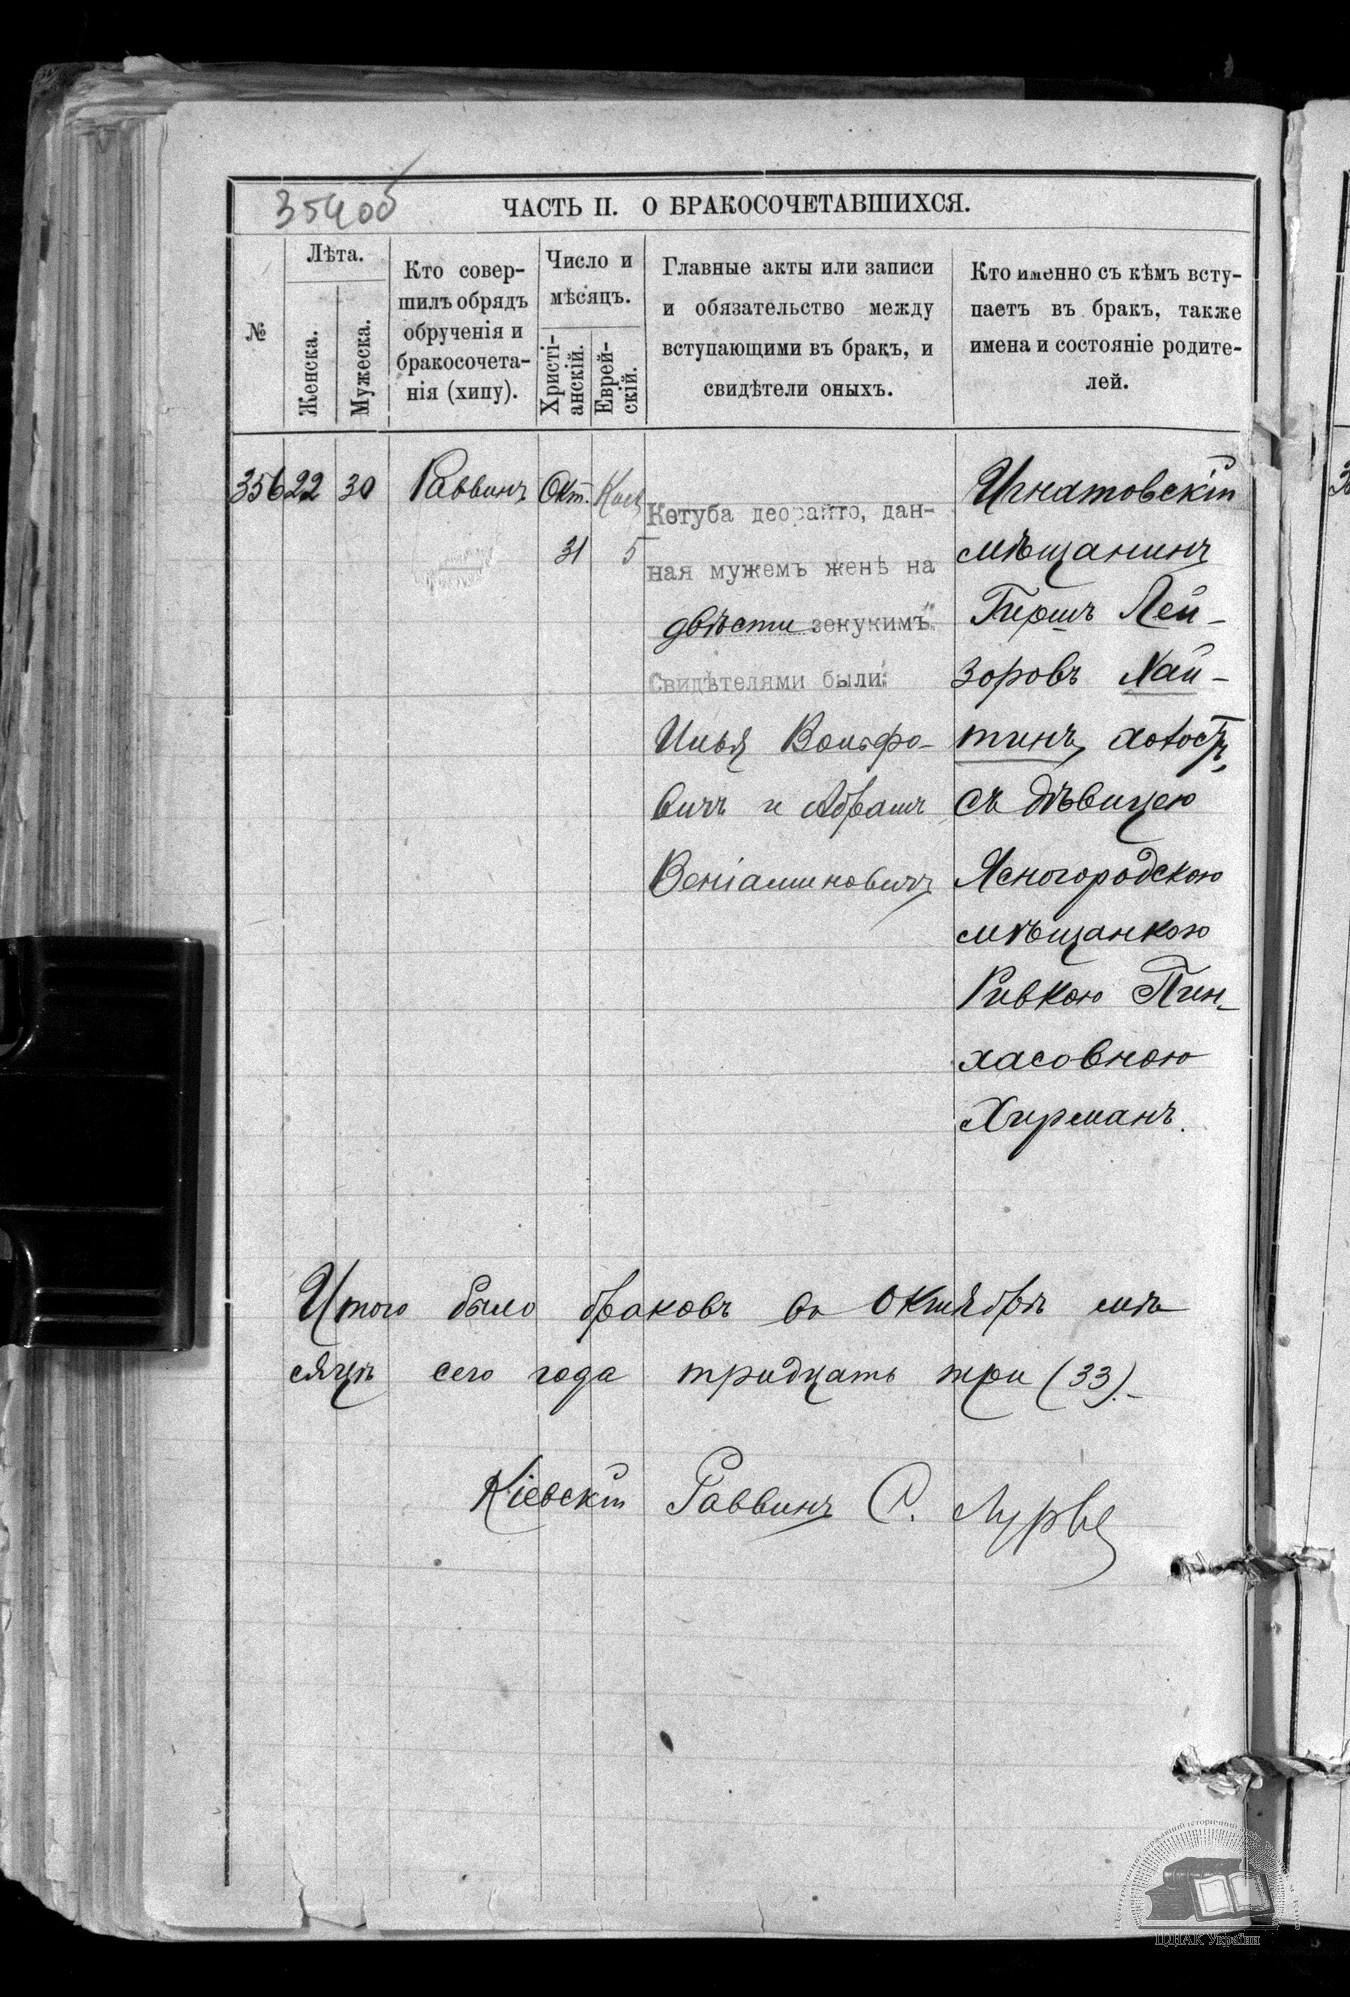 354 об
ЧАСТЬ II. О БРАКОСОЧЕТАВШИХСЯ.
№
Лѣта.
Женска.
Мужеска.
Кто совер-
шилъ обрядъ
обрученія и
бракосочета-
нія (хипу).
Число и
мѣсяцъ.
Христі-
анскій.
Еврей-
скій.
Главные акты или записи
и обязательство между
вступающими въ бракъ, и
свидѣтели оныхъ.
Кто именно съ кѣмъ всту-
паетъ въ бракъ, также
имена и состояніе родите-
лей.
356
22
30
Раввинъ
Окт.
31
5
Кетуба деорайто, дан-
ная мужемъ женѣ на
двѣсти зекукимъ"
Свидѣтелями были:
Илья Вольфо-
вичъ и Абрамъ
Веніаминовичъ
Игнатовскій
мѣщанинъ
Гершъ Лей-
зоровъ Хай-
тинъ, холостъ,
съ дѣвицею
Ясногородскою
мѣщанкою
Ривкою Пин-
хасовною
Хирманъ.
Итого было браковъ въ Октябрѣ мѣ
сяцѣ сего года тридцать три (33).-
Кіевскій Раввинъ С. Лурье
ЦДІАК України